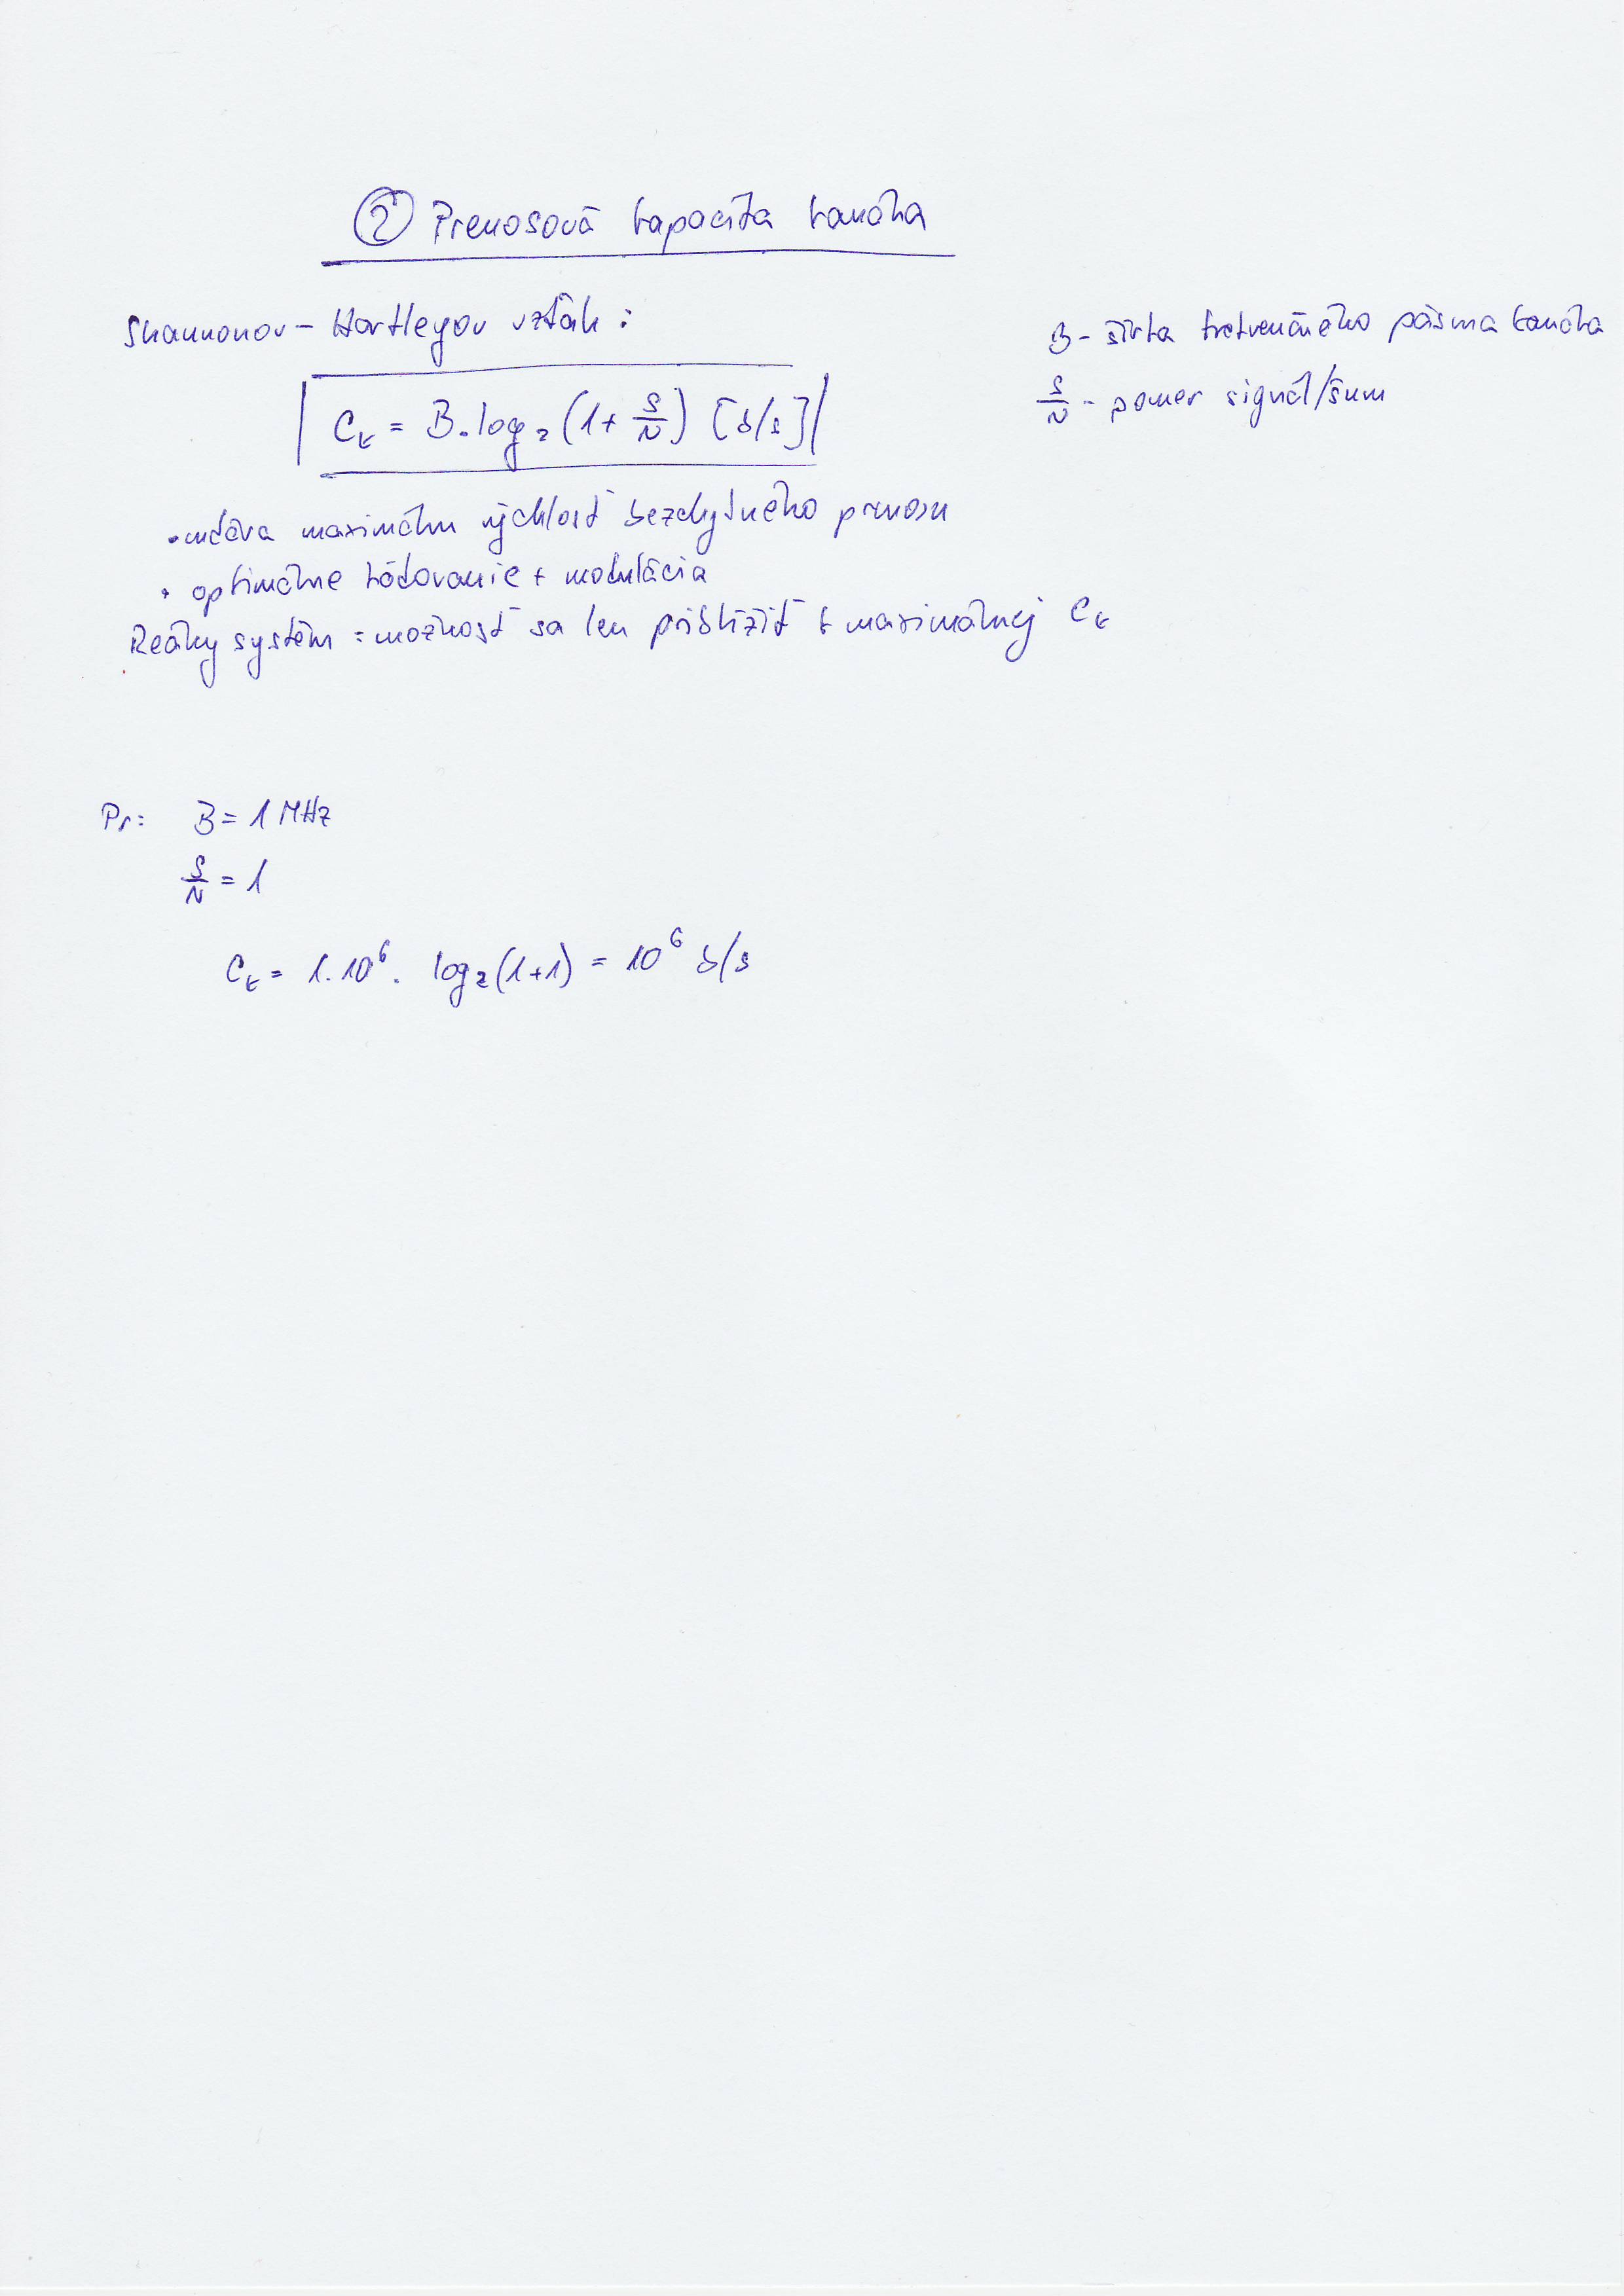 ② Prenosová kapacita kanála
Shannonov - Hartleyov vzťah :
B - šírka frekvenčného pásma kanála
S/N - pomer signál/šum
C_k = B.log₂(1+ S/N) [b/s]
• udáva maximálnu rýchlosť bezchybného prenosu
• optimálne kódovanie + modulácia
Reálny systém : možnosť sa len priblížiť k maximálnej C_k
Pr: B = 1 MHz
S/N = 1
C_k = 1.10⁶. log₂(1+1) = 10⁶ b/s